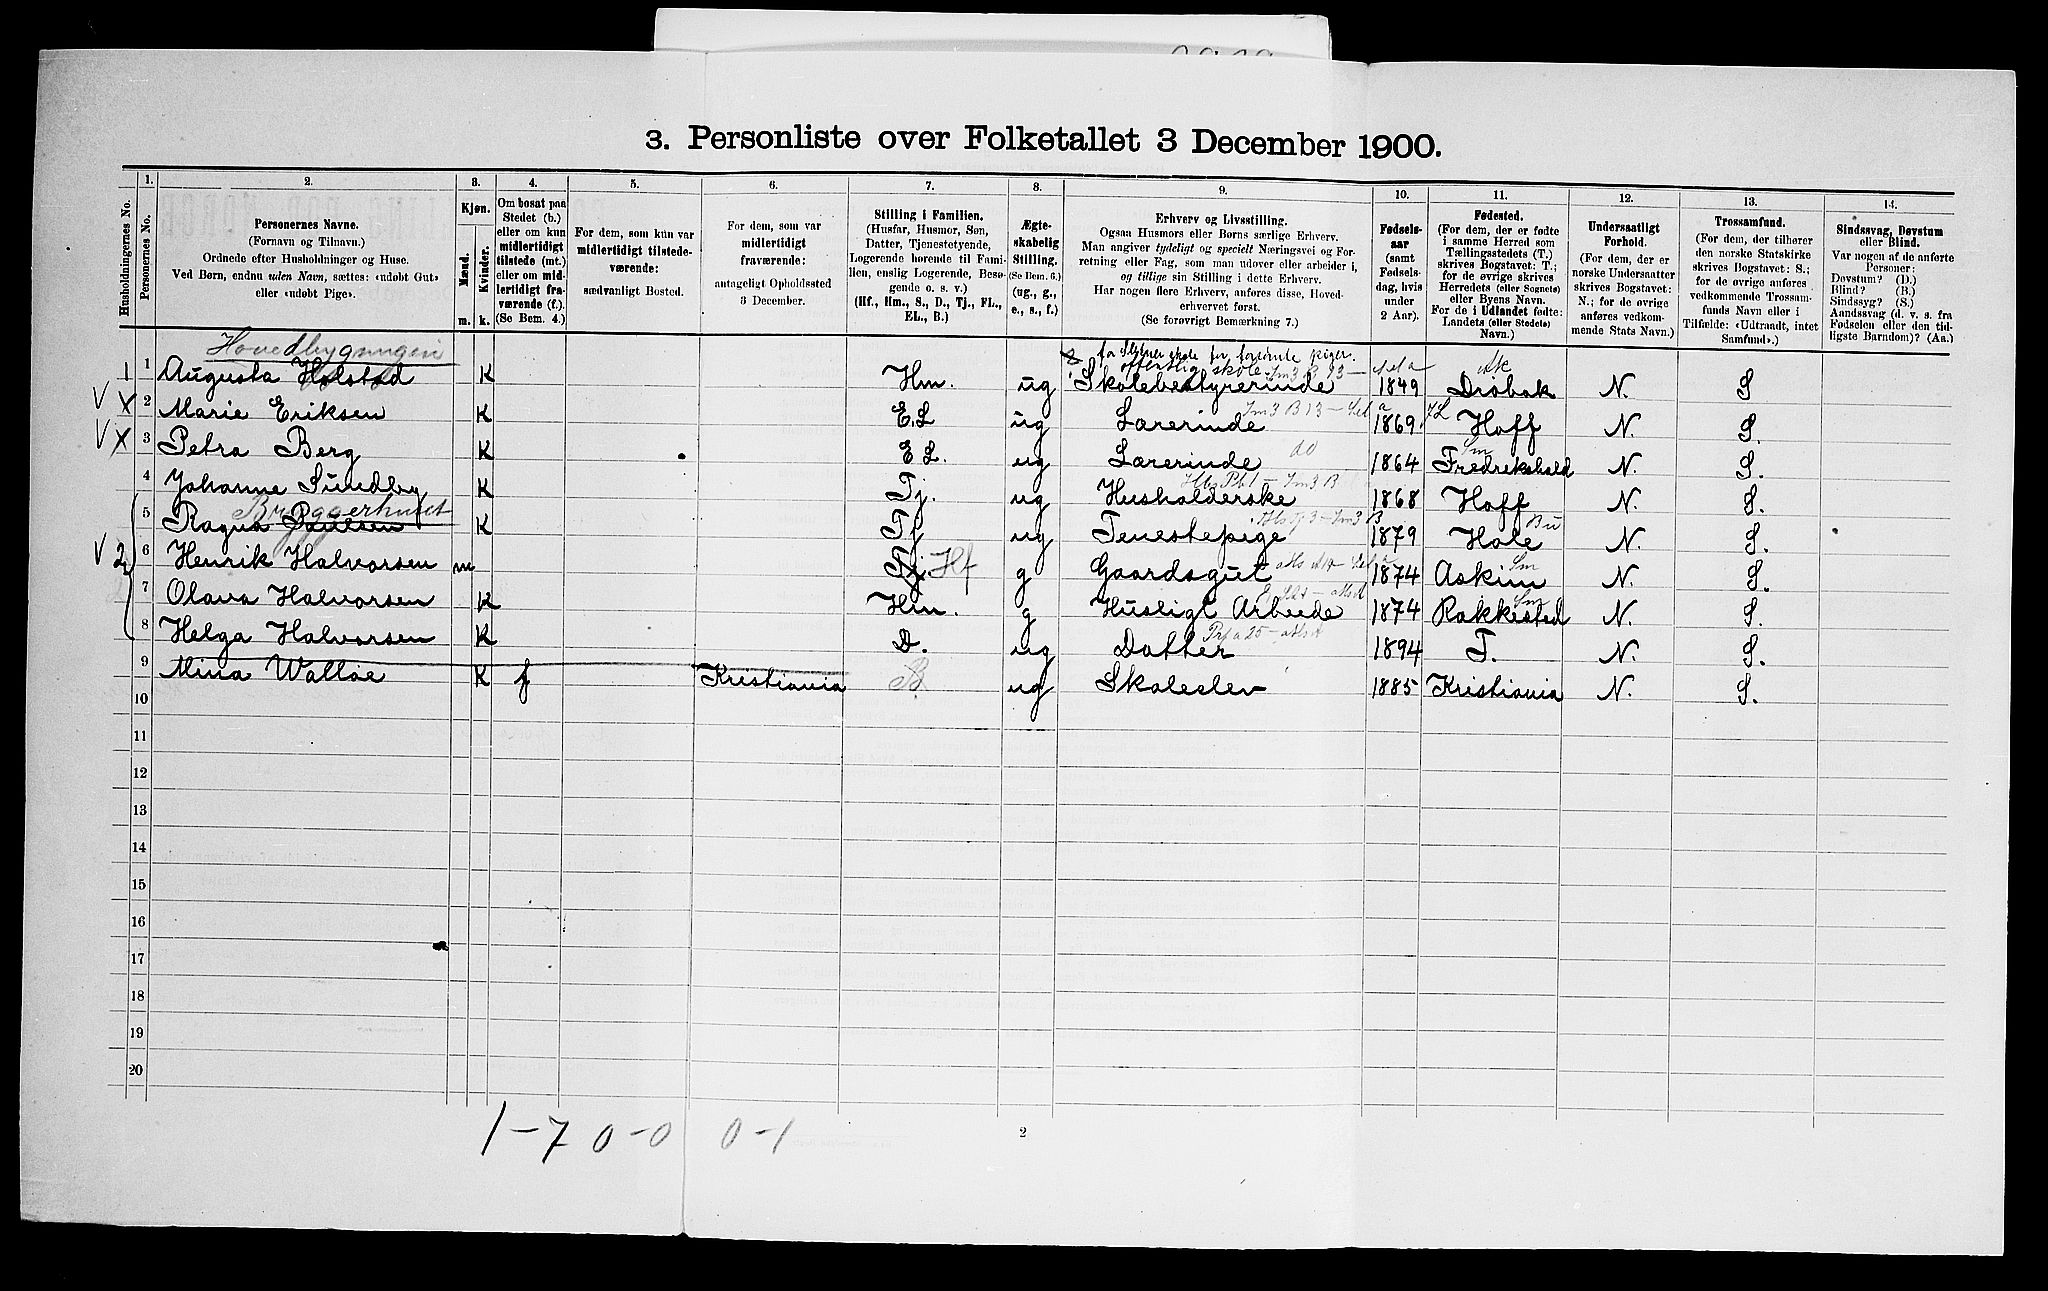 3. Personliste over Folketallet 3 December 1900.
Husholdningernes No.
1. Personernes No.
2. Personernes Navne.
(Fornavn og Tilnavn.)
Ordnede efter Husholdninger og Huse.
Ved Børn, endnu uden Navn, sættes: «udøbt Gut»
eller «udøbt Pige».
3. Kjøn.
Mænd. m.
Kvinder. k.
4. Om bosat paa
Stedet (b.)
eller om kun
midlertidigt
tilstede (mt.)
eller om mid-
lertidigt fra-
værende (f.).
(Se Bem. 4.)
5. For dem, som kun var
midlertidigt tilstede-
værende:
sædvanligt Bosted.
6. For dem, som var
midlertidigt
fraværende:
antageligt Opholdssted
3 December.
7. Stilling i Familien.
(Husfar, Husmor, Søn,
Datter, Tjenestetyende,
Logerende hørende til Fami-
lien, enslig Logerende, Besø-
gende o. s. v.)
(Hf., Hm., S., D., Tj., FL.,
EL., B.)
8. Ægte-
skabelig
Stilling.
(Se Bem. 6.)
(ug., g.,
e., s., f.)
9. Erhverv og Livsstilling.
Ogsaa Husmors eller Børns særlige Erhverv.
Man angiver tydeligt og specielt Næringsvei og For-
retning eller Fag, som man udøver eller arbeider i,
og tillige sin Stilling i dette Erhverv.
Har nogen flere Erhverv, anføres disse, Hoved-
erhvervet først.
(Se forøvrigt Bemærkning 7.)
10. Fødsels-
aar
(samt
Fødsels-
dag, hvis
under
2 Aar).
11. Fødested.
(For dem, der er fødte
i samme Herred som
Tællingsstedets (T.)
skrives Bogstavet: T.;
for de øvrige skrives
Herredets (eller Sognets)
eller Byens Navn.
For de i Udlandet fødte:
Landets (eller Stedets)
Navn.)
12. Undersaatligt
Forhold.
(For dem, der er
norske Undersaatter
skrives Bogstavet:
N.; for de øvrige
anføres vedkom-
mende Stats Navn.)
13. Trossamfund.
(For dem, der tilhører
den norske Statskirke
skrives Bogstavet: S.;
for de øvrige anføres
vedkommende Trossam-
funds Navn eller i
Tilfælde: «Udtraadt, intet
Samfund».)
14. Sindssvag, Døvstum
eller Blind.
Var nogen af de anførte
Personer:
Døvstum? (D.)
Blind? (B.)
Sindssyg? (S.)
Aandssvag (d. v. s. fra
Fødselen eller den tid-
ligste Barndom)? (Aa.)
Hovedbygningen
offentlig skole Im3 B 13 - Ak
1 1 Augusta Holstad K Hm. ug Skolebestyrerinde 1849 Drøbak N. S
Im3 B 13
V X 2 Marie Eriksen K E.L ug Lærerinde 1869 Hoff N. S.
do Sm
V X 3 Petra Berg K E L. ug Lærerinde 1864 Fredrekshald N. S.
Im3 B
4 Johanne Sundby K Tj. ug Husholderske 1868 Hoff N. S.
Bryggerhuset
Im3 B Bu
5 Ragna Paulsen K Tj ug Tenestepige 1879 Hole N. S.
Sm
V 2 6 Henrik Halvorsen m Tj. Hf g Gaardsgut 1874 Askim N. S.
Sm
7 Olava Halvorsen K Hm. g Husligt Arbeide 1874 Rakkestad N. S.
8 Helga Halvorsen K D. ug Datter 1894 T. N. S.
9 Mina Walløe K f Kristiania B. ug Skoleelev 1885 Kristiania N. S.
10
11
12
13
14
15
16
17
18
19
20
1-7 0-0 0-1
2